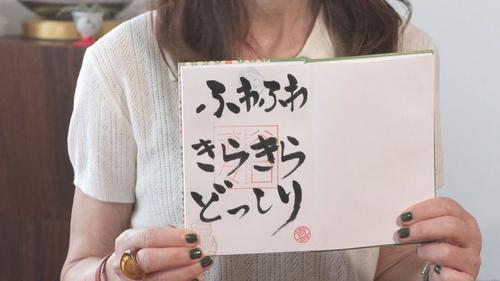 ふわふわ
きらきら
どっしり